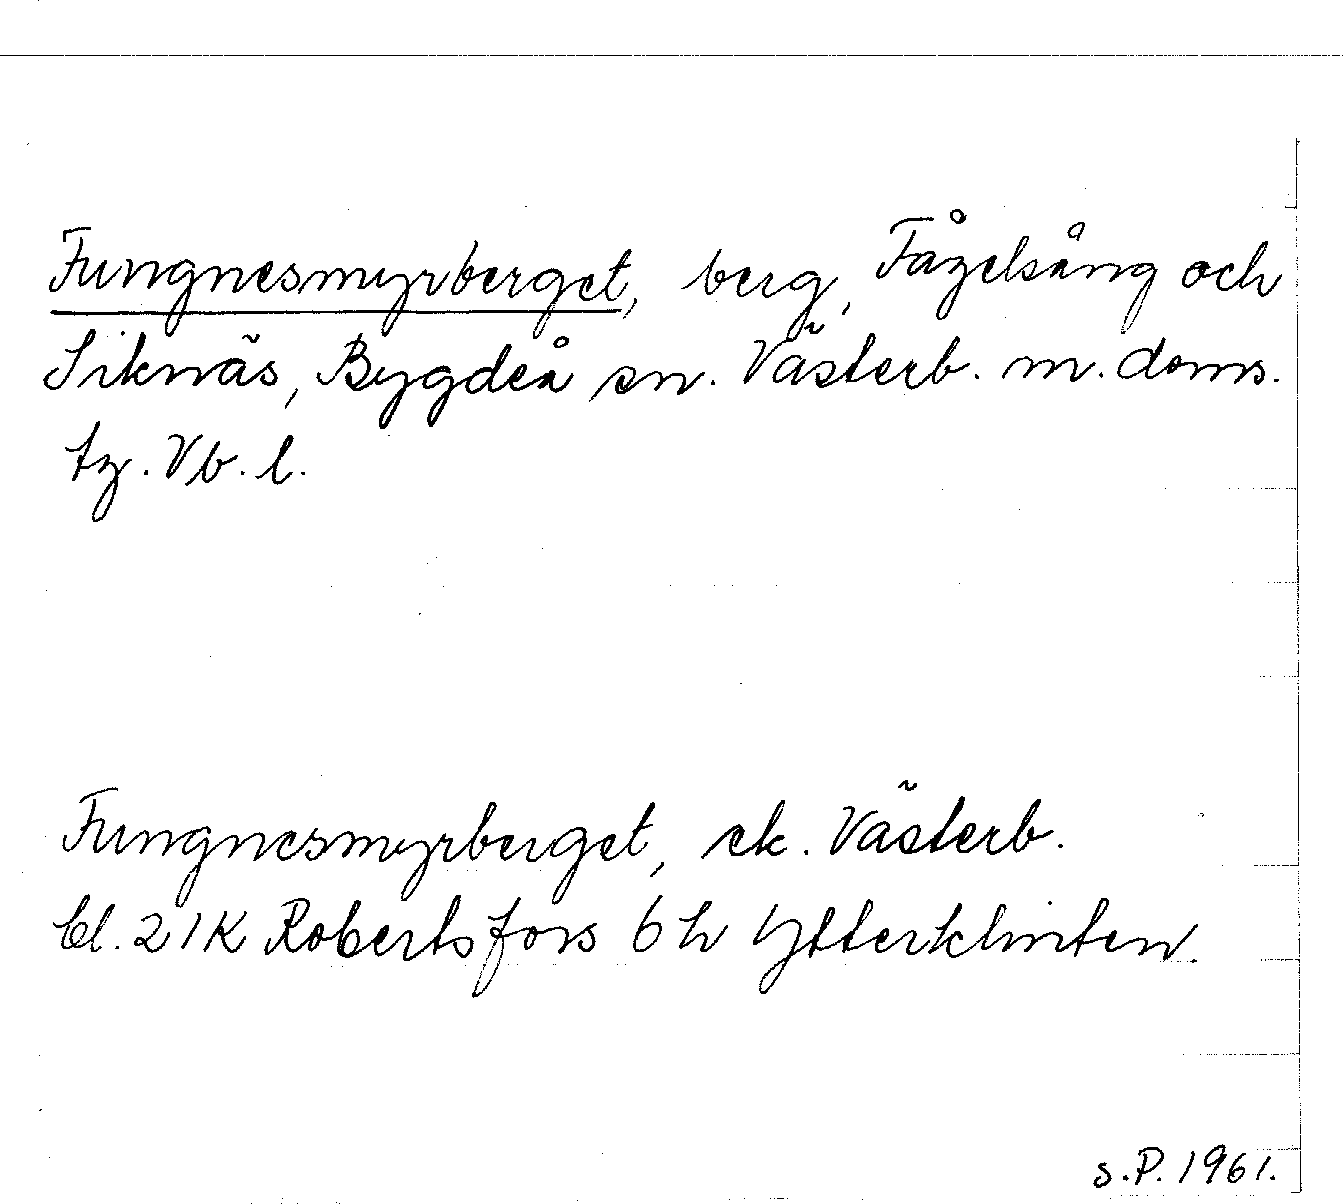 Fungnesmyrberget, berg, Fågelsång och
Siknäs, Bygdeå sn. Västerb. m. doms.
tg. Vb. l.
Fungnesmyrberget, ek. Västerb.
bl. 21K Robertsfors 6 h Ytterklinten.
S.P. 1961.